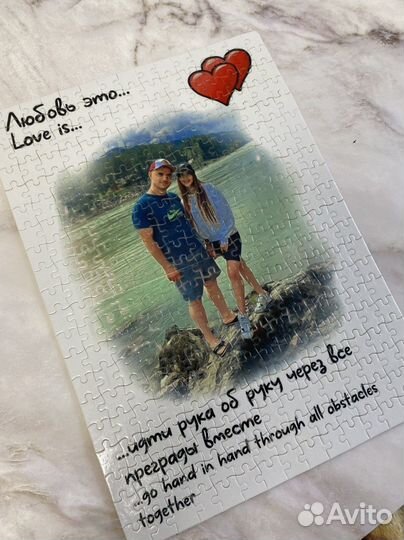 Любовь это...
Love is...
...идти рука об руку через все
преграды вместе
...go hand in hand through all obstacles
together
Avito